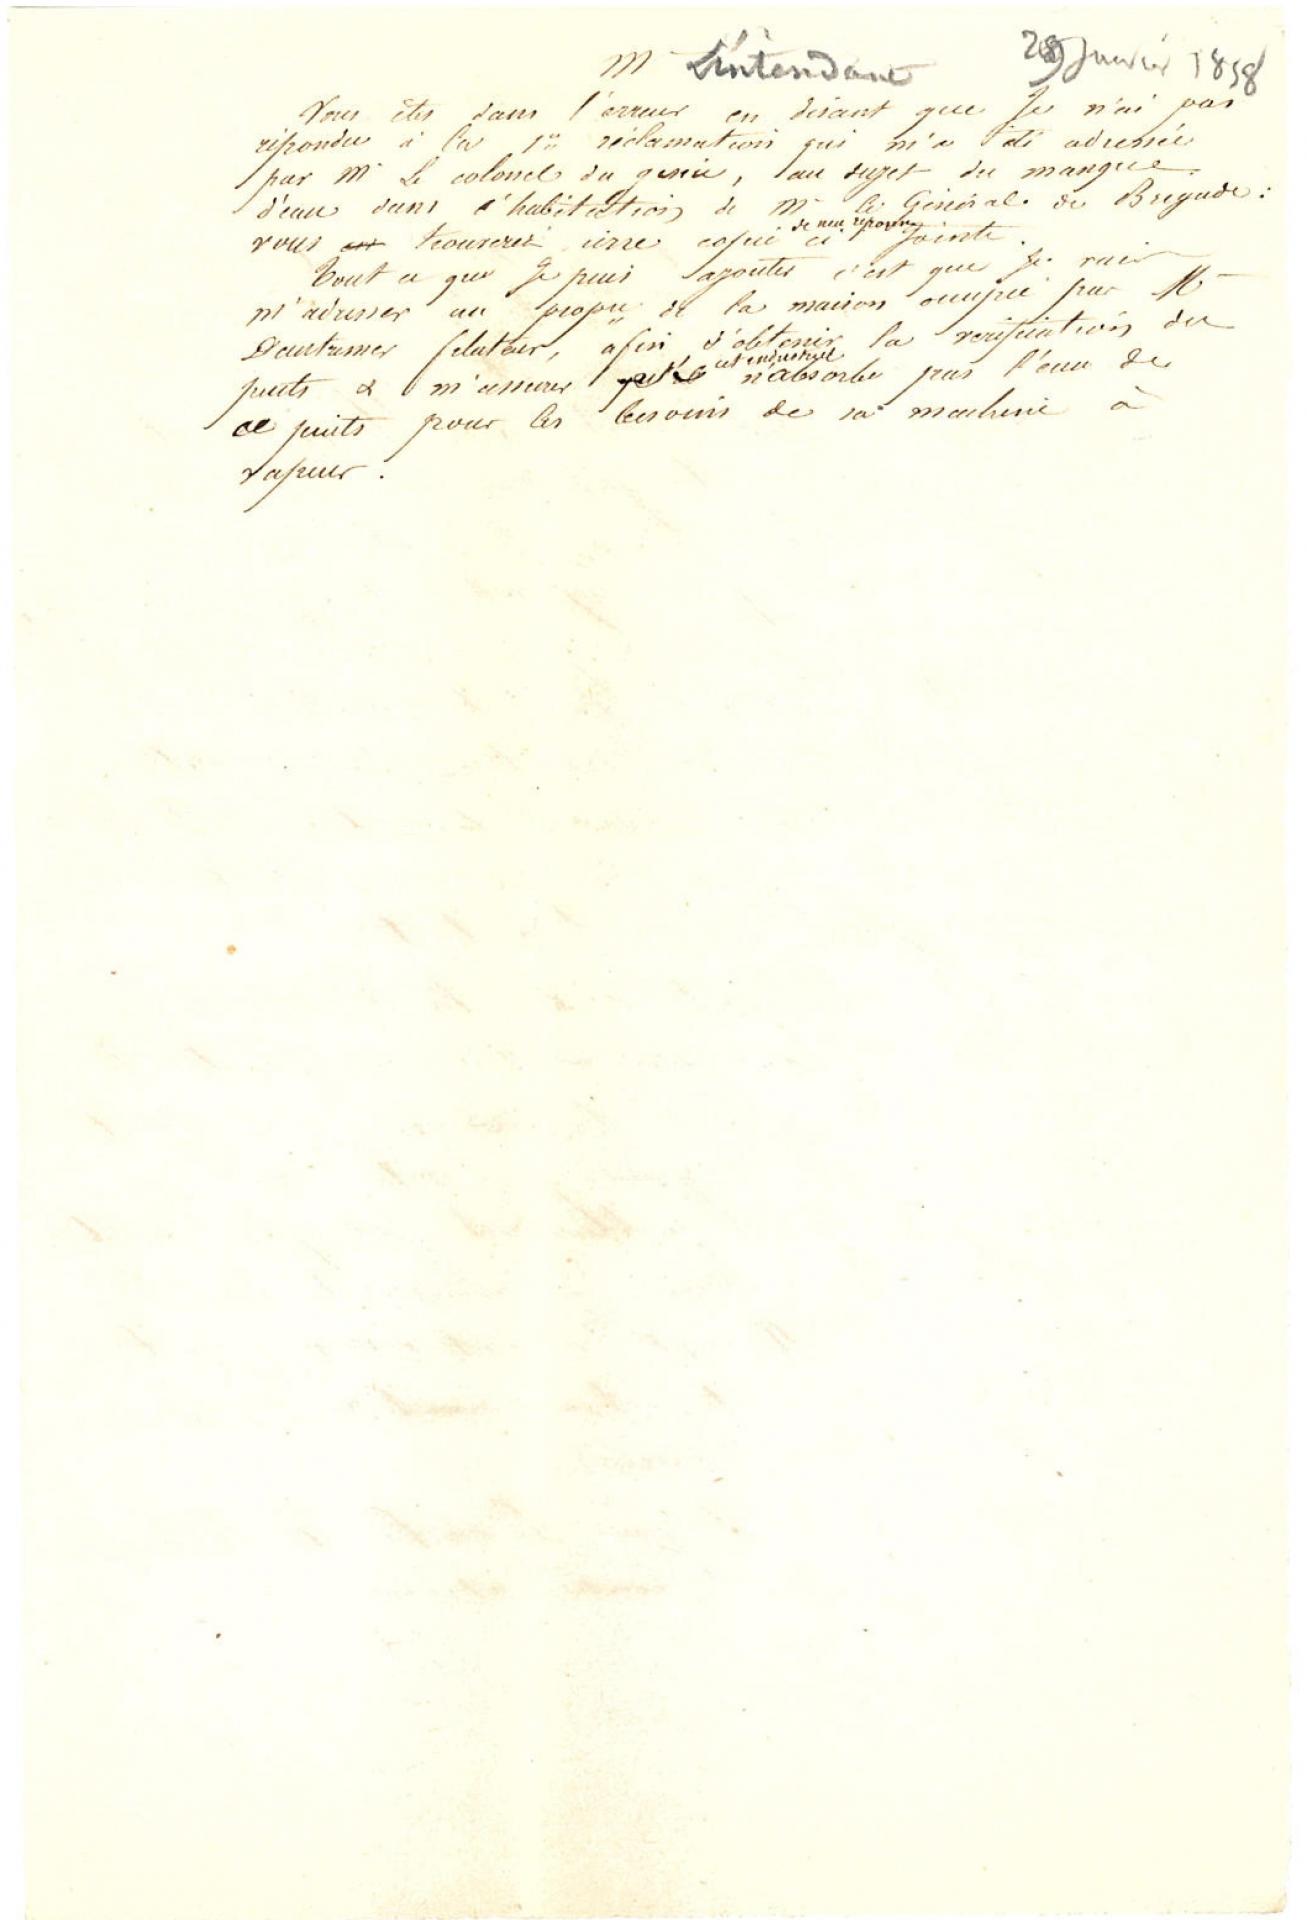 Mr L'intendant 29 Janvier 1858
Vous êtes dans l'erreur en disant que Je n'ai pas
répondu à la 1re réclamation qui m'a été adressée
par Mr Le colonel du génie, au sujet du manque
d'eau dans l'habitation de Mr le Général de Brigade :
vous en trouverez une copie de ma réponse ci Jointe.
Tout ce que Je puis ajouter c'est que Je vais
m'adresser au propre de la maison occupée par Mr
filateur, afin d'obtenir la vérification du
puits & m'assurer que cet industriel n'absorbe pas l'eau de
ce puits pour les besoins de sa machine à
vapeur.